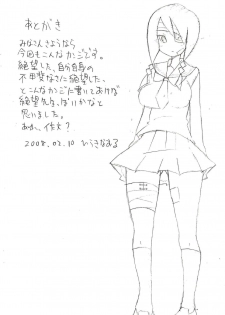 あとがき
みなさんさようなら
今回もこんなカンジです。
絶望した、自分自身の
不甲斐なさに絶望した、
とこんなカンジに書いておけば
絶望先生っぽいかなと
思いました。
あれ、作文?
2008.02.10